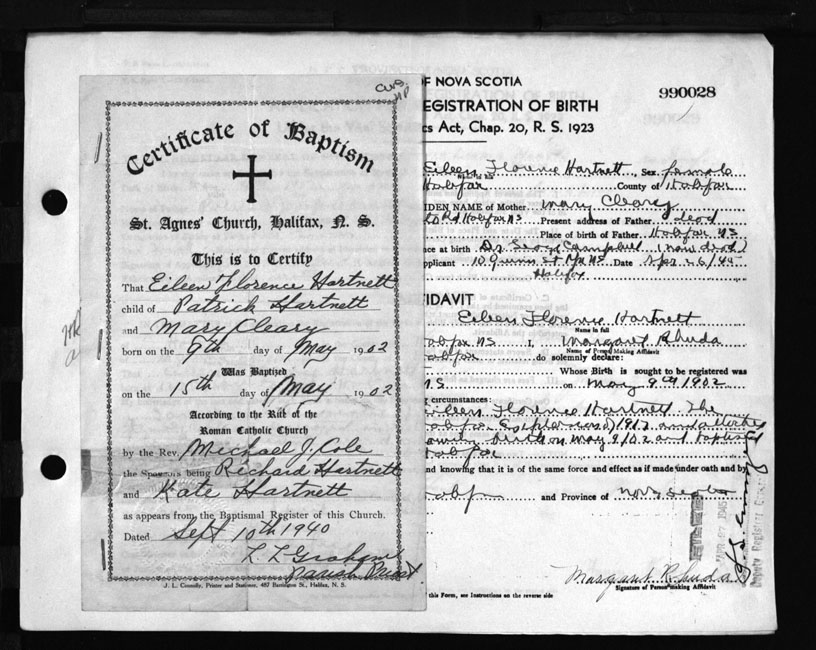 Certificate of Baptism
St. Agnes' Church, Halifax, N. S.
This is to Certify
That Eileen Florence Hartnett
child of Patrick Hartnett
and Mary Cleary
born on the 9th day of May 1902
Was Baptized
on the 15th day of May 1902
According to the Rite of the
Roman Catholic Church
by the Rev. Michael J. Cole
the Sponsors being Richard Hartnett
and Kate Hartnett
as appears from the Baptismal Register of this Church.
Dated Sept 10th 1940
L. L. Graham
Parish Priest
J. L. Connolly, Printer and Stationer, 487 Barrington St., Halifax, N. S.
OF NOVA SCOTIA
990028
EGISTRATION OF BIRTH
cs Act, Chap. 20, R. S. 1923
Eileen Florence Hartnett, Sex female
Halifax County of Halifax
IDEN NAME of Mother Mary Cleary
Rd Halifax NS Present address of Father dead
Place of birth of Father Halifax NS
nce at birth Dr. George Campbell (now dead)
pplicant 10 St NS Date Apr 26/45
Halifax
FFIDAVIT
Eileen Florence Hartnett
Name in full
NS I, Margaret Rhuda
Name of Person Making Affidavit
do solemnly declare:
Whose Birth is sought to be registered was
N.S. on May 9th 1902
ng circumstances:
Eileen Florence Hartnett The
Halifax Explosion 1917
birth on May 9/02 and
Halifax
and knowing that it is of the same force and effect as if made under oath and by
Halifax and Province of Nova Scotia
Deputy Registrar
Margaret Rhuda
Signature of Person making Affidavit
this Form, see Instructions on the reverse side